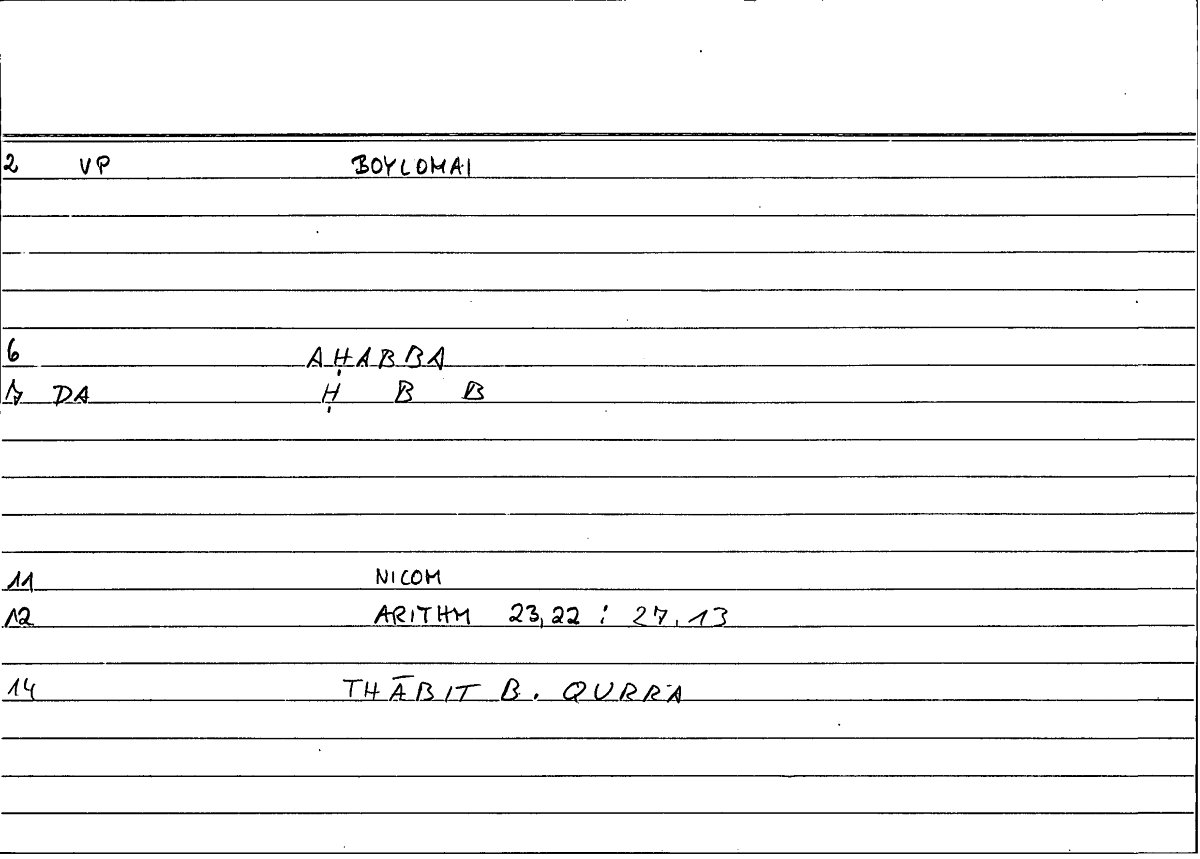 2 VP BOYLOMAI
6 AḤABBA
7 DA Ḥ B B
11 NICOM
12 ARITHM 23,22 : 27,13
14 THĀBIT B. QURRA